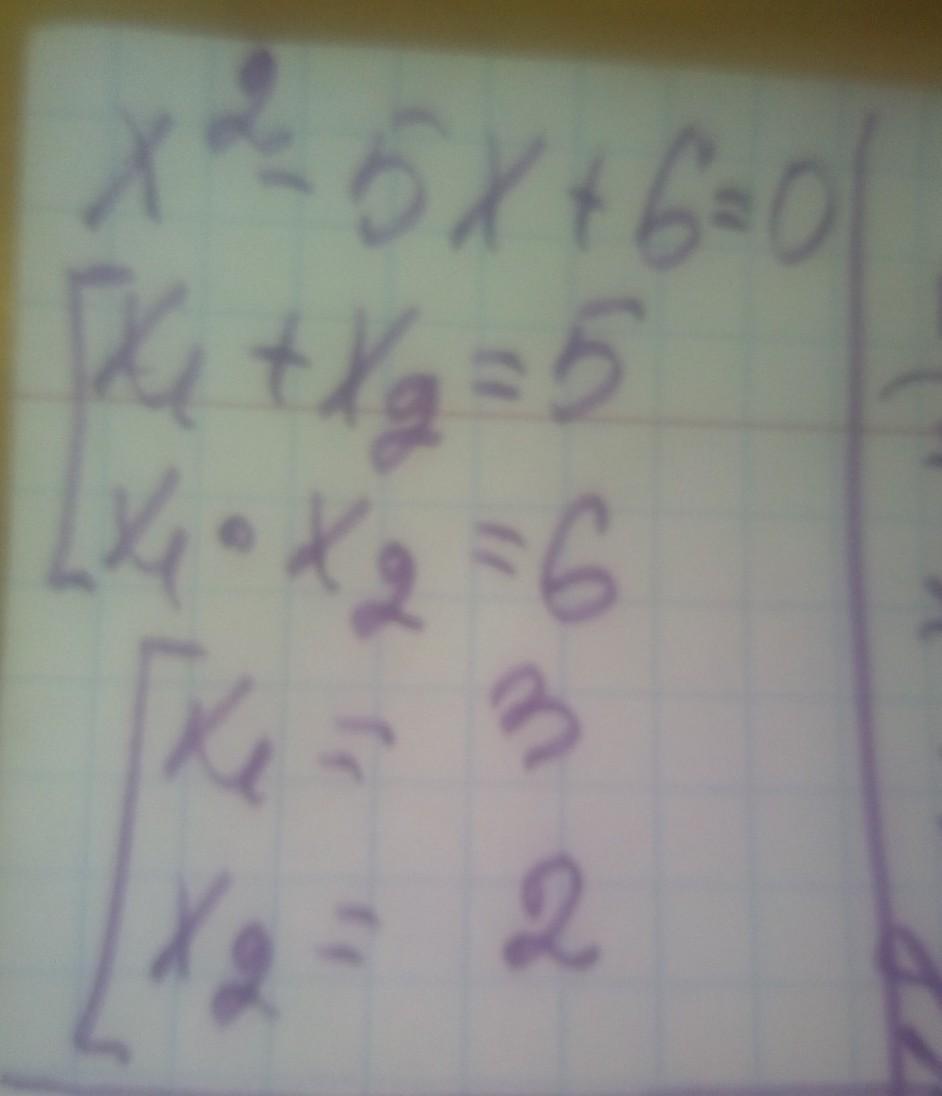 x² - 5x + 6 = 0
[x₁ + x₂ = 5
[x₁ • x₂ = 6
[x₁ = 3
[x₂ = 2